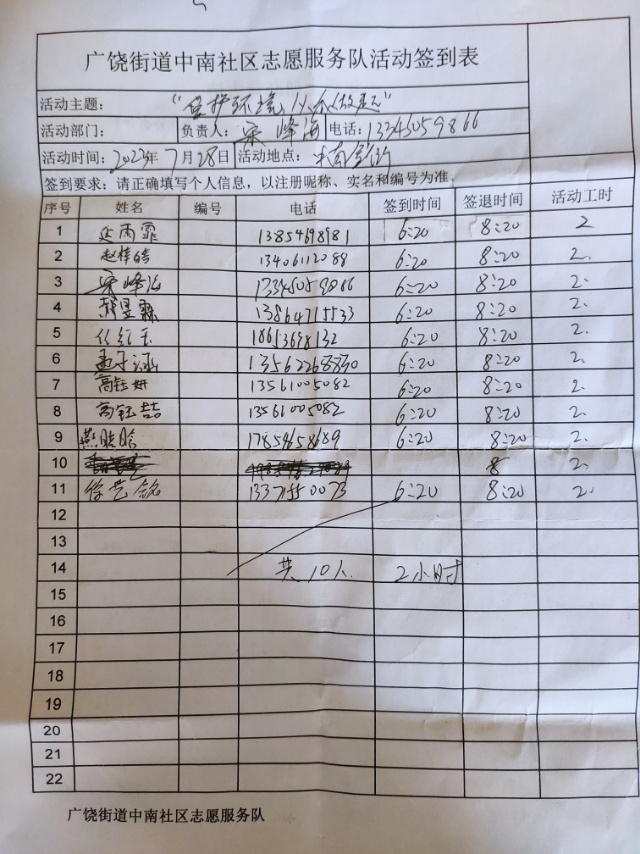 广饶街道中南社区志愿服务队活动签到表
活动主题： “保护环境，从我做起”
活动部门： 负责人：宋峰海 电话：13345059866
活动时间：2023年7月28日 活动地点：
签到要求：请正确填写个人信息，以注册昵称、实名和编号为准。
序号 姓名 编号 电话 签到时间 签退时间 活动工时
1 延雨霏 13854698981 6:20 8:20 2
2 赵梓皓 13406112088 6:20 8:20 2.
3 宋峰海 13345059866 6:20 8:20 2.
4 13864715533 6:20 8:20 2.
5 18653698132 6:20 8:20 2.
6 孟子涵 13562268830 6:20 8:20 2.
7 高钰妍 13561005082 6:20 8:20 2.
8 高钰喆 13561005082 6:20 8:20 2.
9 燕 17854658689 6:20 8:20 2.
10 8 2.
11 徐艺铭 13371550073 6:20 8:20 2.
12
13
14 共10人 2小时
15
16
17
18
19
20
21
22
广饶街道中南社区志愿服务队